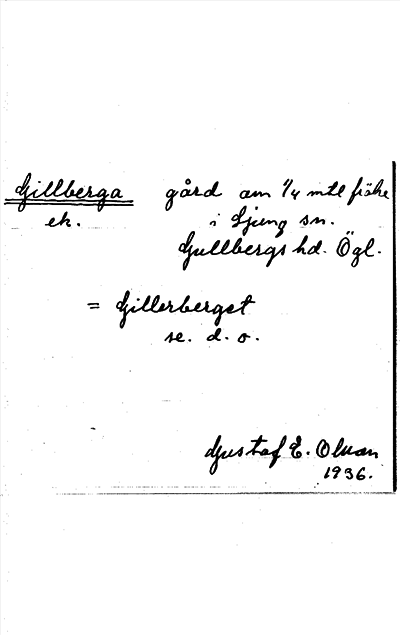 Gillberga gård om 1/4 mtl frälse
ek. i Ljung sn.
Gullbergs hd. Ögl.
= Gillerberget
se. d. o.
Gustaf E. Olsson
1936.